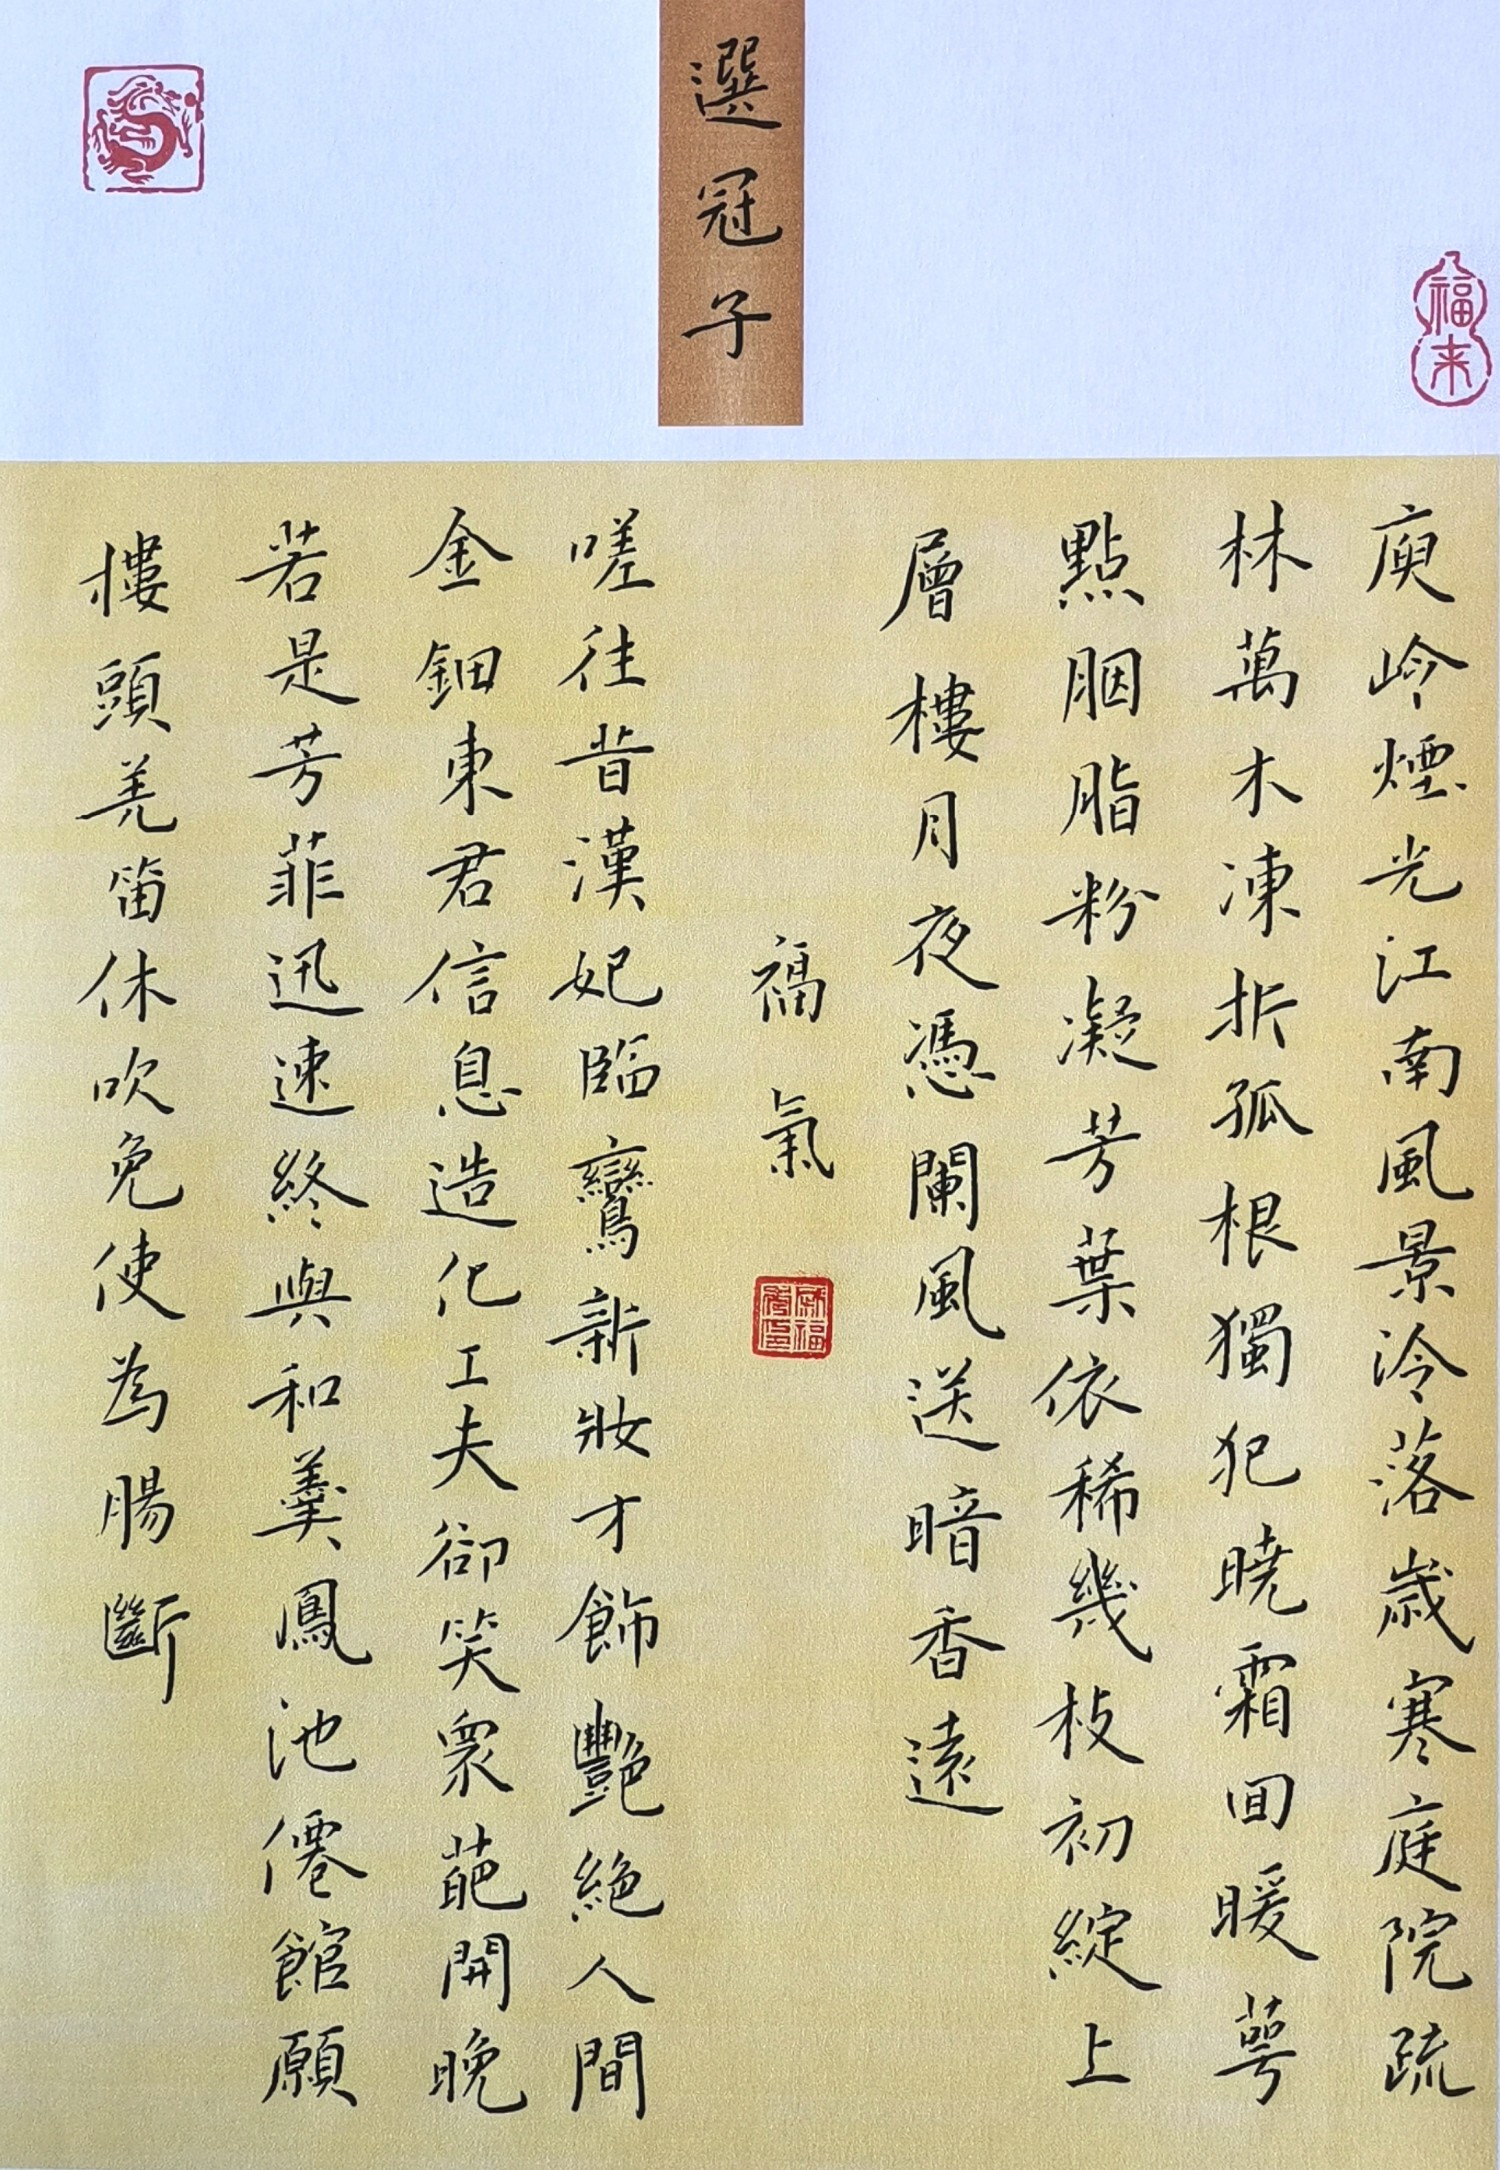 選冠子
福来
庾岭煙光江南風景泠落歳寒庭院疏
林萬木凍折孤根獨犯曉霜回暖萼
點胭脂粉凝芳葉依稀幾枝初綻上
層樓月夜憑闌風送暗香遠
福氣
嗟往昔漢妃臨鸞新妝才飾艷絕人間
金鈿東君信息造化工夫卻笑衆葩開晚
若是芳菲迅速終與和羹鳳池僊館願
樓頭羌笛休吹免使為腸斷